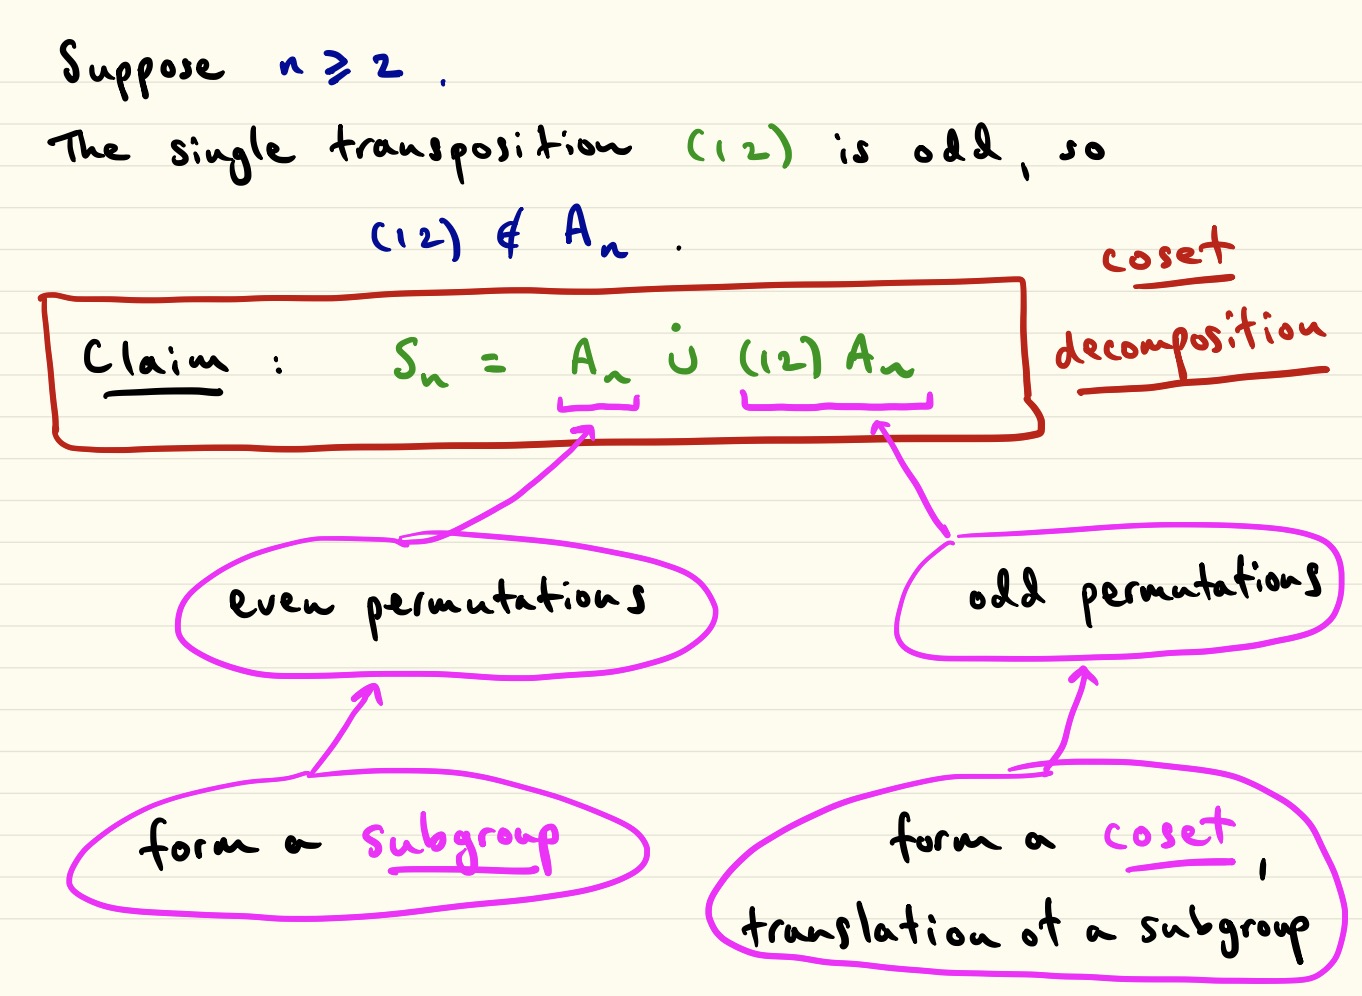 Suppose n ⩾ 2 .
The single transposition (12) is odd, so
(12) ∉ Aₙ .
coset
decomposition
Claim : Sₙ = Aₙ ∪̇ (12) Aₙ
even permutations
odd permutations
form a subgroup
form a coset,
translation of a subgroup